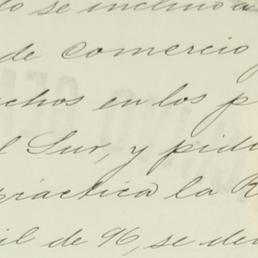 se inclinó a
de comercio
chos en los p
l Sur, y pide
práctica la R
il de 96, se de